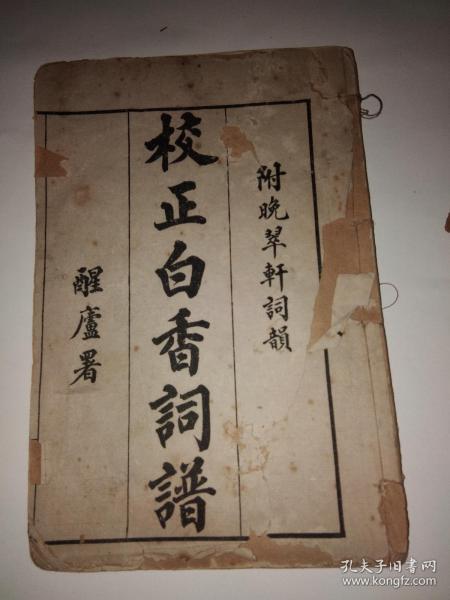 附晚翠軒詞韻
校正白香詞譜
醒廬署
孔夫子旧书网
www.kongfz.com